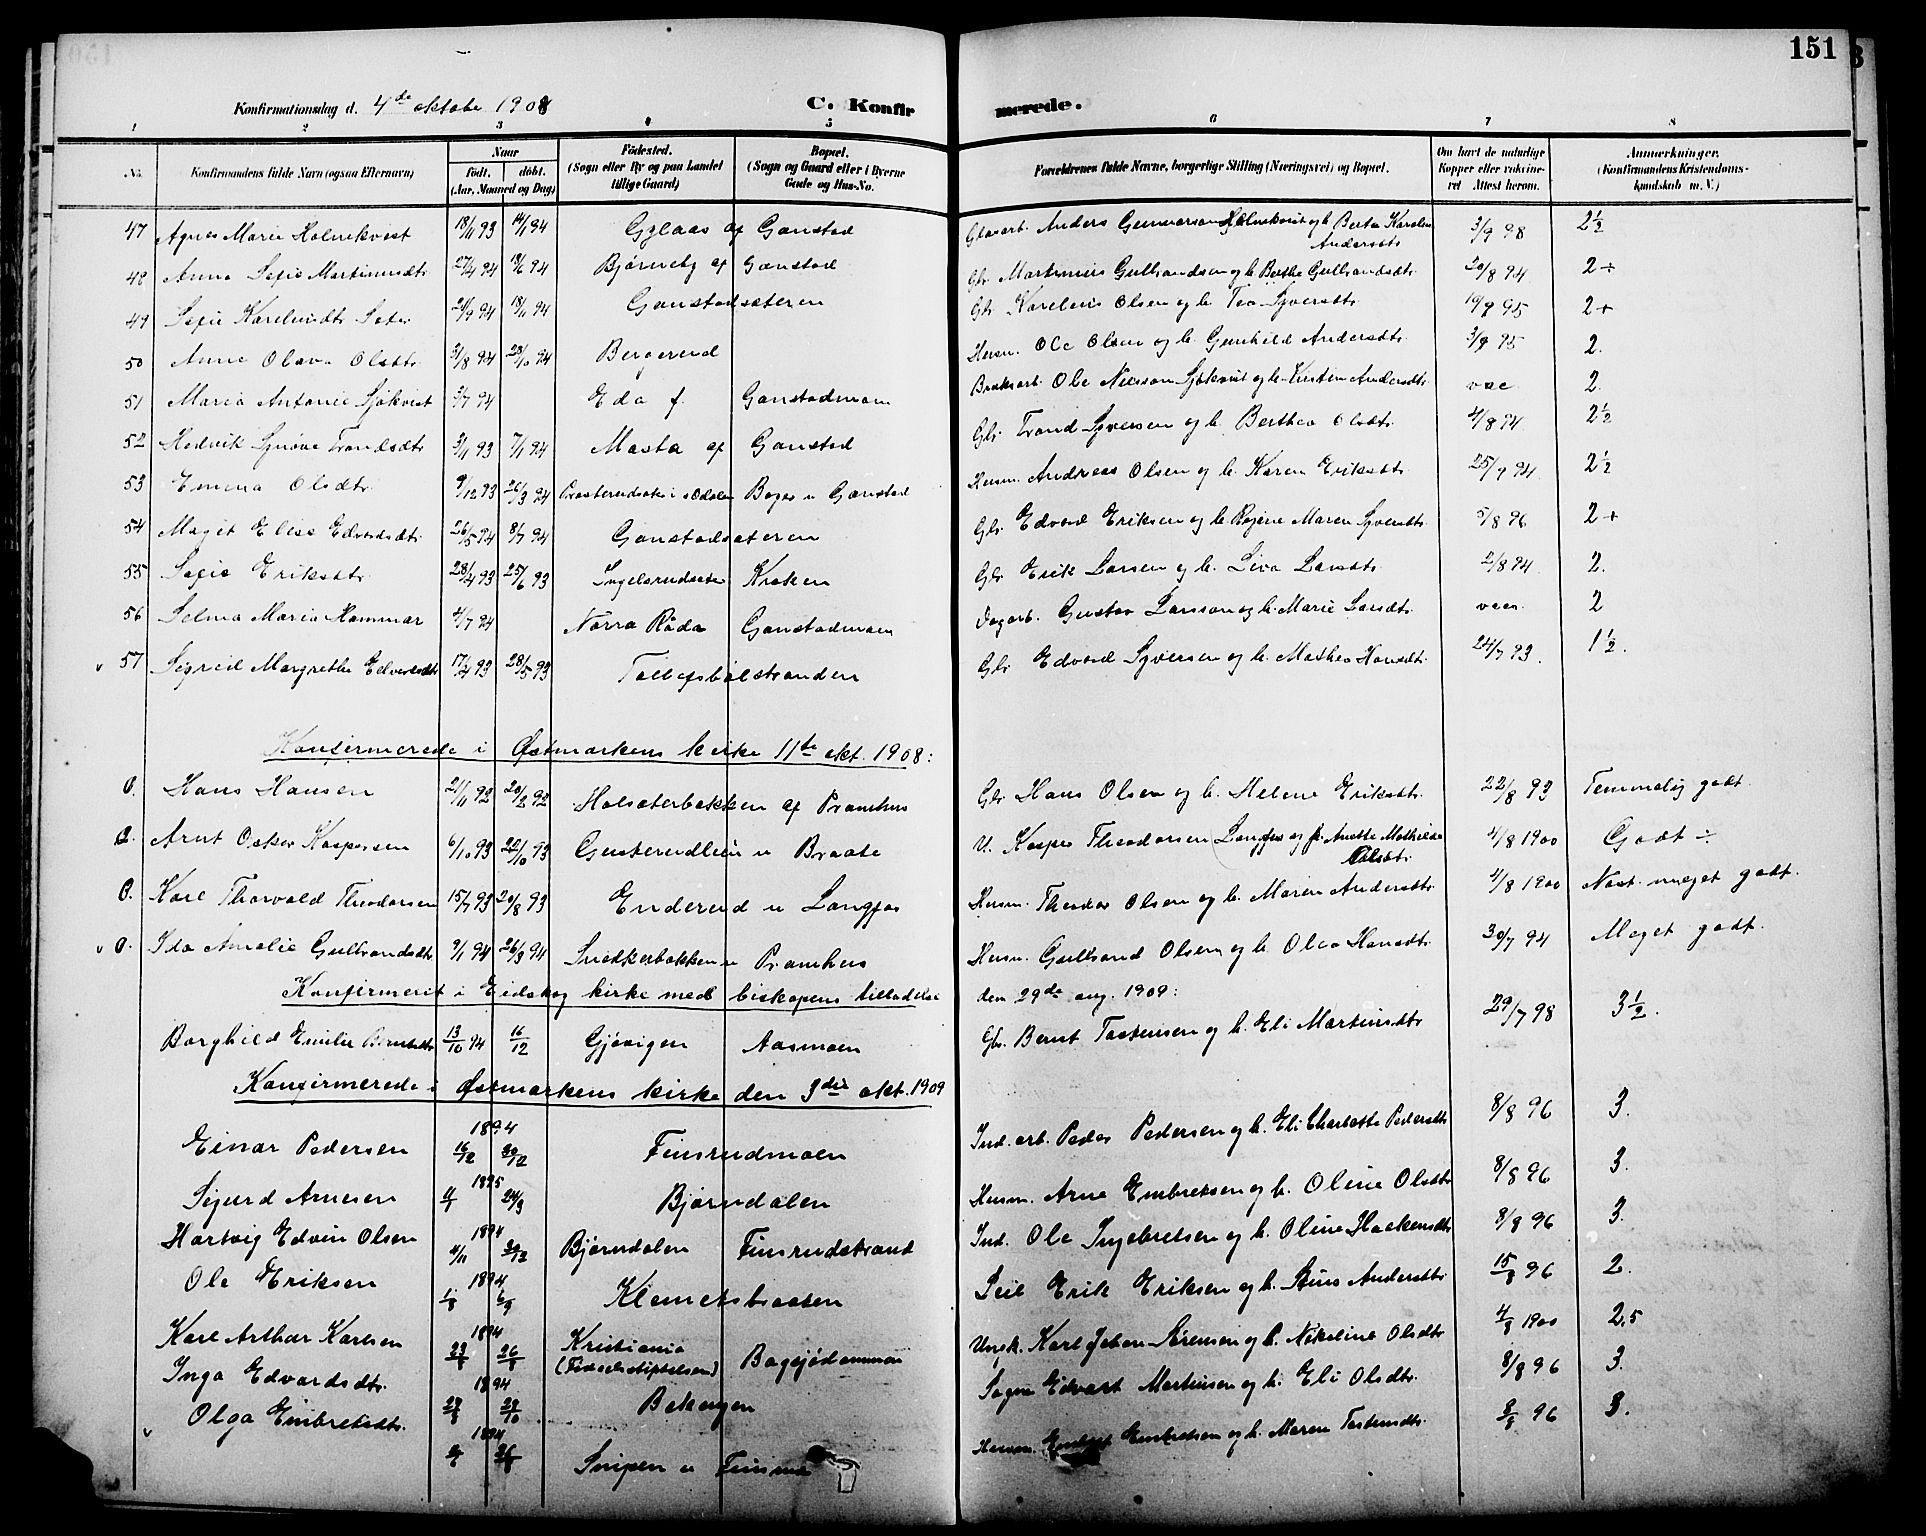 151
Konfirmationsdag d. 4de oktobe 1908
C. Konfirmerede.
1 2 3 4 5 6 7 8
No. Konfirmandens fulde Navn (ogsaa Efternavn) Naar født. døbt. (Aar, Maaned og Dag) Fødested. (Sogn eller By og paa Landet tillige Gaard) Bopæl. (Sogn og Gaard eller i Byerne Gade og Hus-No. Forældrenes fulde Navne, borgerlige Stilling (Næringsvei) og Bopæl. Om havt de naturlige Kopper eller vaccineret Attest herom. Anmærkninger. (Konfirmandens Kristendomskundskab m. V.)
47 Agnes Marie Holmkvist 18/11 93 14/1 94 Gylaas af Gaustad Glasarb. Anders Gunnarsen Holmkvist og h. Berta Karoline Andersdtr 3/9 98 2 1/2
48 Anna Sofie Martinusdtr 27/4 94 94 Bjørneby af Gaustad Gbr. Martinius Gulbrandsen og h. Berthe Gulbrandsdtr. 20/8 94 2 ÷
49 Sofie Karelusdtr Sæter 94 18/11 94 Gaustadsæteren Gbr. Karelius Olsen og h. Tea Syversdtr. 95 2+
50 Anne Olava Olsdtr. 3/8 94 28/10 94 Bergerud Husm. Ole Olsen og h. Gunhild Andersdtr. 3/9 95 2.
51 Maria Antonie Sjøkvist 3/7 94 Eda f. Gaustadmoen Bruksarb. Ole Nilsson Sjøkvist og h. Kirstin Andersdtr. vac. 2.
52 Hedvik Synøve Trondsdtr 3/11 93 7/1 94 Masta af Gaustad Gbr. Trond Syversen og h. Berthea Olsdtr. 4/8 94 2 1/2
53 Emma Olsdtr. 9/12 93 26/3 94 Prasterudsæter i s. Odalen Boger u Gaustad Husm. Andreas Olsen og h. Karen Eriksdtr. 25/7 94 2 1/2
54 Magit Elise Edvardsdtr. 26/5 94 8/7 94 Gaustadsæteren Gbr. Edvard Eriksen og h. Rogine Maren Syversdtr. 5/8 96 2+
55 Sofie Eriksdtr. 28/4 93 25/6 93 Ingelsrudsæter Kroken Gbr. Erik Larsen og h. Liva Larsdtr. 2/8 94. 2.
56 Selma Maria Hammar 4/7 94 Norra Råda Gaustadmoen Dagarb. Gustav Larsson og h. Marie Larsdtr. vacc. 2
v 57 Sigrid Margrethe Edvardsdtr 17/4 93 28/5 93 Tollefsbølstranden Gbr. Edvard Syversen og h. Mathea Hansdtr. 24/7 93. 1 1/2.
Konfirmerede i Østmarkens kirke 11te okt. 1908:
O. Hans Hansen 21/11 92 92 Holsæterbakken af Pramhus Gbr. Hans Olsen og h. Helene Eriksdtr. 22/8 93 Temmelig godt
O. Arnt Oskar Kaspersen 6/10 93 22/10 93 Gusterudlien u Braate U. Kasper Theodorsen Langfos og p. Anette Mathilde Olsdtr. 4/8 1900 Godt ÷
O. Karl Thorvald Theodorsen 15/7 93 20/8 93 Enderud u Langfos Husm. Theodor Olsen og h. Maren Andersdtr. 4/8 1900 Næst meget godt.
v O. Ida Amalie Gulbrandsdtr. 9/1 94 26/3 94 Snedkerbakken u Pramhus Husm. Gulbrand Olsen og h. Olea Hansdtr. 30/7 94 Meget godt.
Konfirmeret i Eidskog kirke med biskopens tilladelse den 29de aug. 1909:
Borghild Emilie Berntsdtr 13/10 94 16/12 Gjøvigen Aasmoen Gbr. Bernt Tostensen og h. Eli Martinsdtr 29/7 98 3 1/2.
Konfirmerede i Østmarkens kirke den 3die okt. 1909
Einar Pedersen 1894 16/12 30/12 Finsrudmoen Ind. arb. Peder Pedersen og h. Eli Charlotte Pedersdtr 8/8 96 3.
Sigurd Arnesen 1895 24/3 Bjørndalen Husm. Arne Embretsen og h. Oline Olsdtr 8/8 96 3.
Hartvig Edvin Olsen 1894 4/11 Bjørndalen Finsrudstrand Ind. Ole Ingebretsen og h. Oline Haakensdtr 8/8 96 3.
Ole Eriksen 1894 1/8 6/9 Klemetsbraaten Seil Erik Eriksen og h. Andersdtr 15/8 96 2.
Karl Arthur Karlsen 1894 26/8 Kristiania (Fødselsstiftelsen) Bogsjødammen Ungk. Karl Johan Sørensen og p. Nikoline Olsdtr 4/8 1900 2,5
Inga Edvardsdtr. 1894 Bekengen Edvart Martinsen og h. Eli Olsdtr. 8/8 96 3.
v Olga Embretsdtr. 1894 Snipen u Husm. Embretsen og h. Maren Tostensdtr. 8/8 96 3.